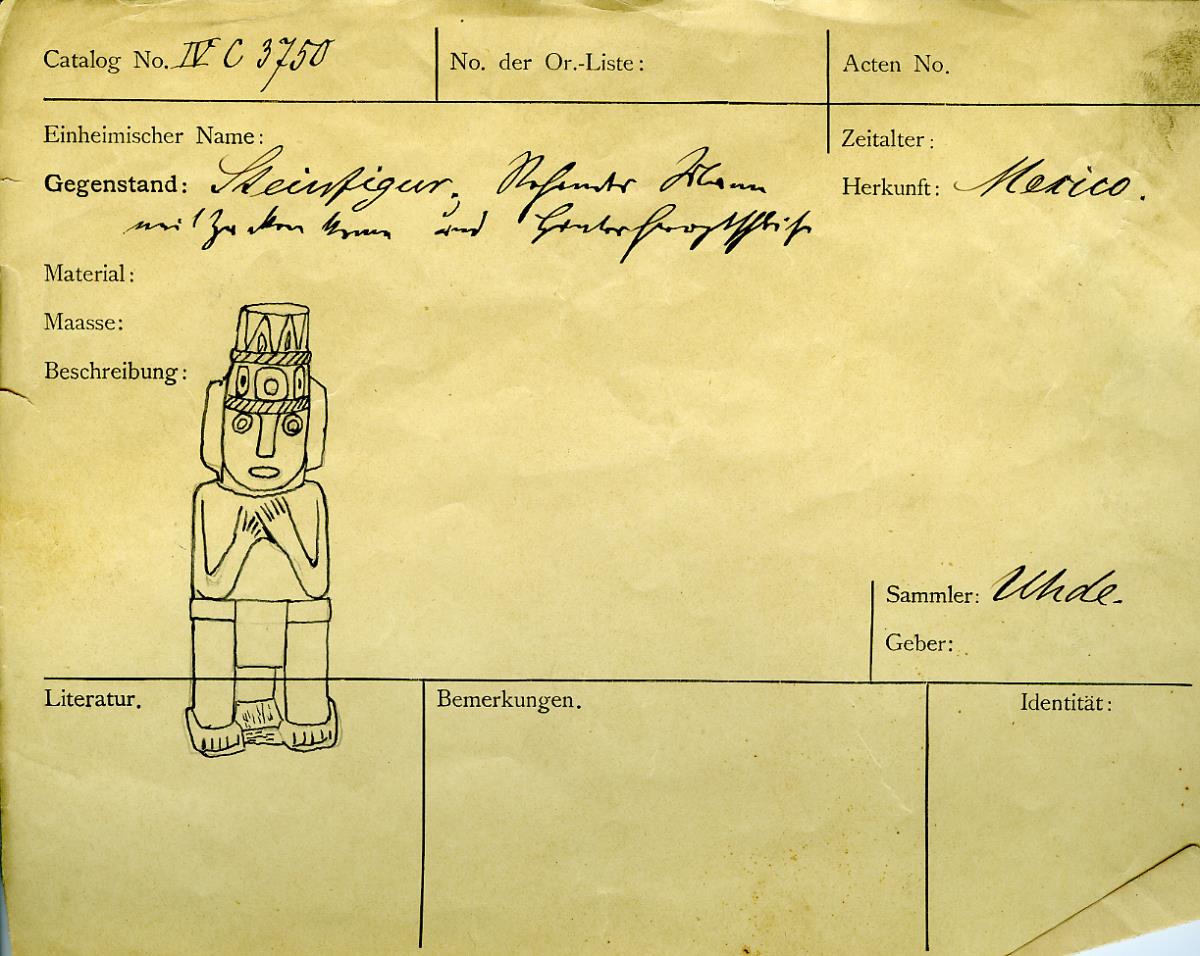 Catalog No. IV C 3750
No. der Or.-Liste:
Acten No.
Einheimischer Name:
Zeitalter:
Gegenstand: Steinfigur. Stehender Mann
Herkunft: Mexico.
mit Zackenkrone und
Material:
Maasse:
Beschreibung:
Sammler: Uhde.
Geber:
Literatur.
Bemerkungen.
Identität: